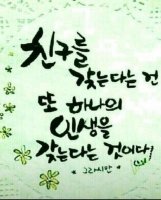 친구를
갖는다는 건
또 하나의
인생을
갖는다는 것이다!
* 그라시안 *